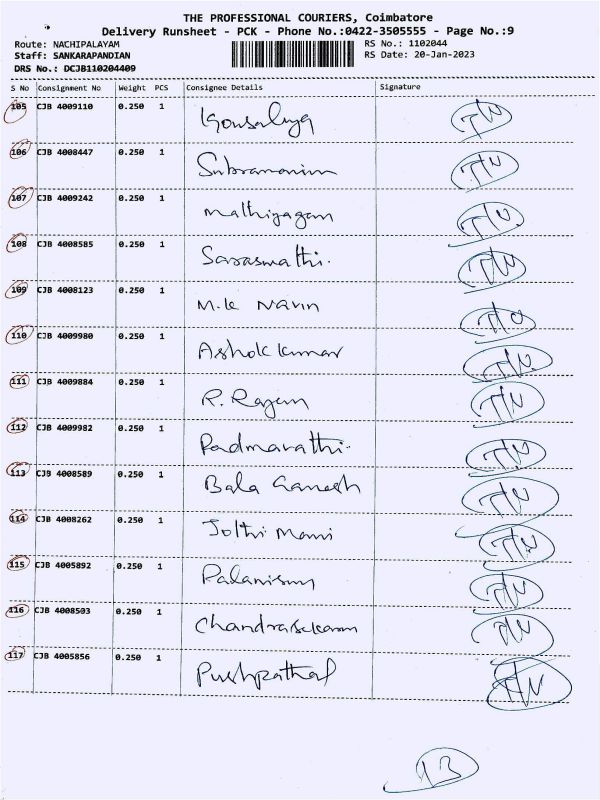 THE PROFESSIONAL COURIERS, Coimbatore
Delivery Runsheet - PCK - Phone No.:0422-3505555 - Page No.:9
Route: NACHIPALAYAM RS No.: 1102044
Staff: SANKARAPANDIAN RS Date: 20-Jan-2023
DRS No.: DCJB110204409
S No Consignment No Weight PCS Consignee Details Signature
105 CJB 4009110 0.250 1 Gousalya
106 CJB 4008447 0.250 1 Subramanim
107 CJB 4009242 0.250 1 Mathiyagan
108 CJB 4008585 0.250 1 Saraswathi.
109 CJB 4008123 0.250 1 M.K Navin
110 CJB 4009980 0.250 1 Ashok Kumar
111 CJB 4009884 0.250 1 R. Rajan
112 CJB 4009982 0.250 1 Padmavathi.
113 CJB 4008589 0.250 1 Bala Ganesh
114 CJB 4008262 0.250 1 Jothi Mani
115 CJB 4005892 0.250 1 Palanismy
116 CJB 4008503 0.250 1 Chandrasekaran
117 CJB 4005856 0.250 1 Pushpathal
13